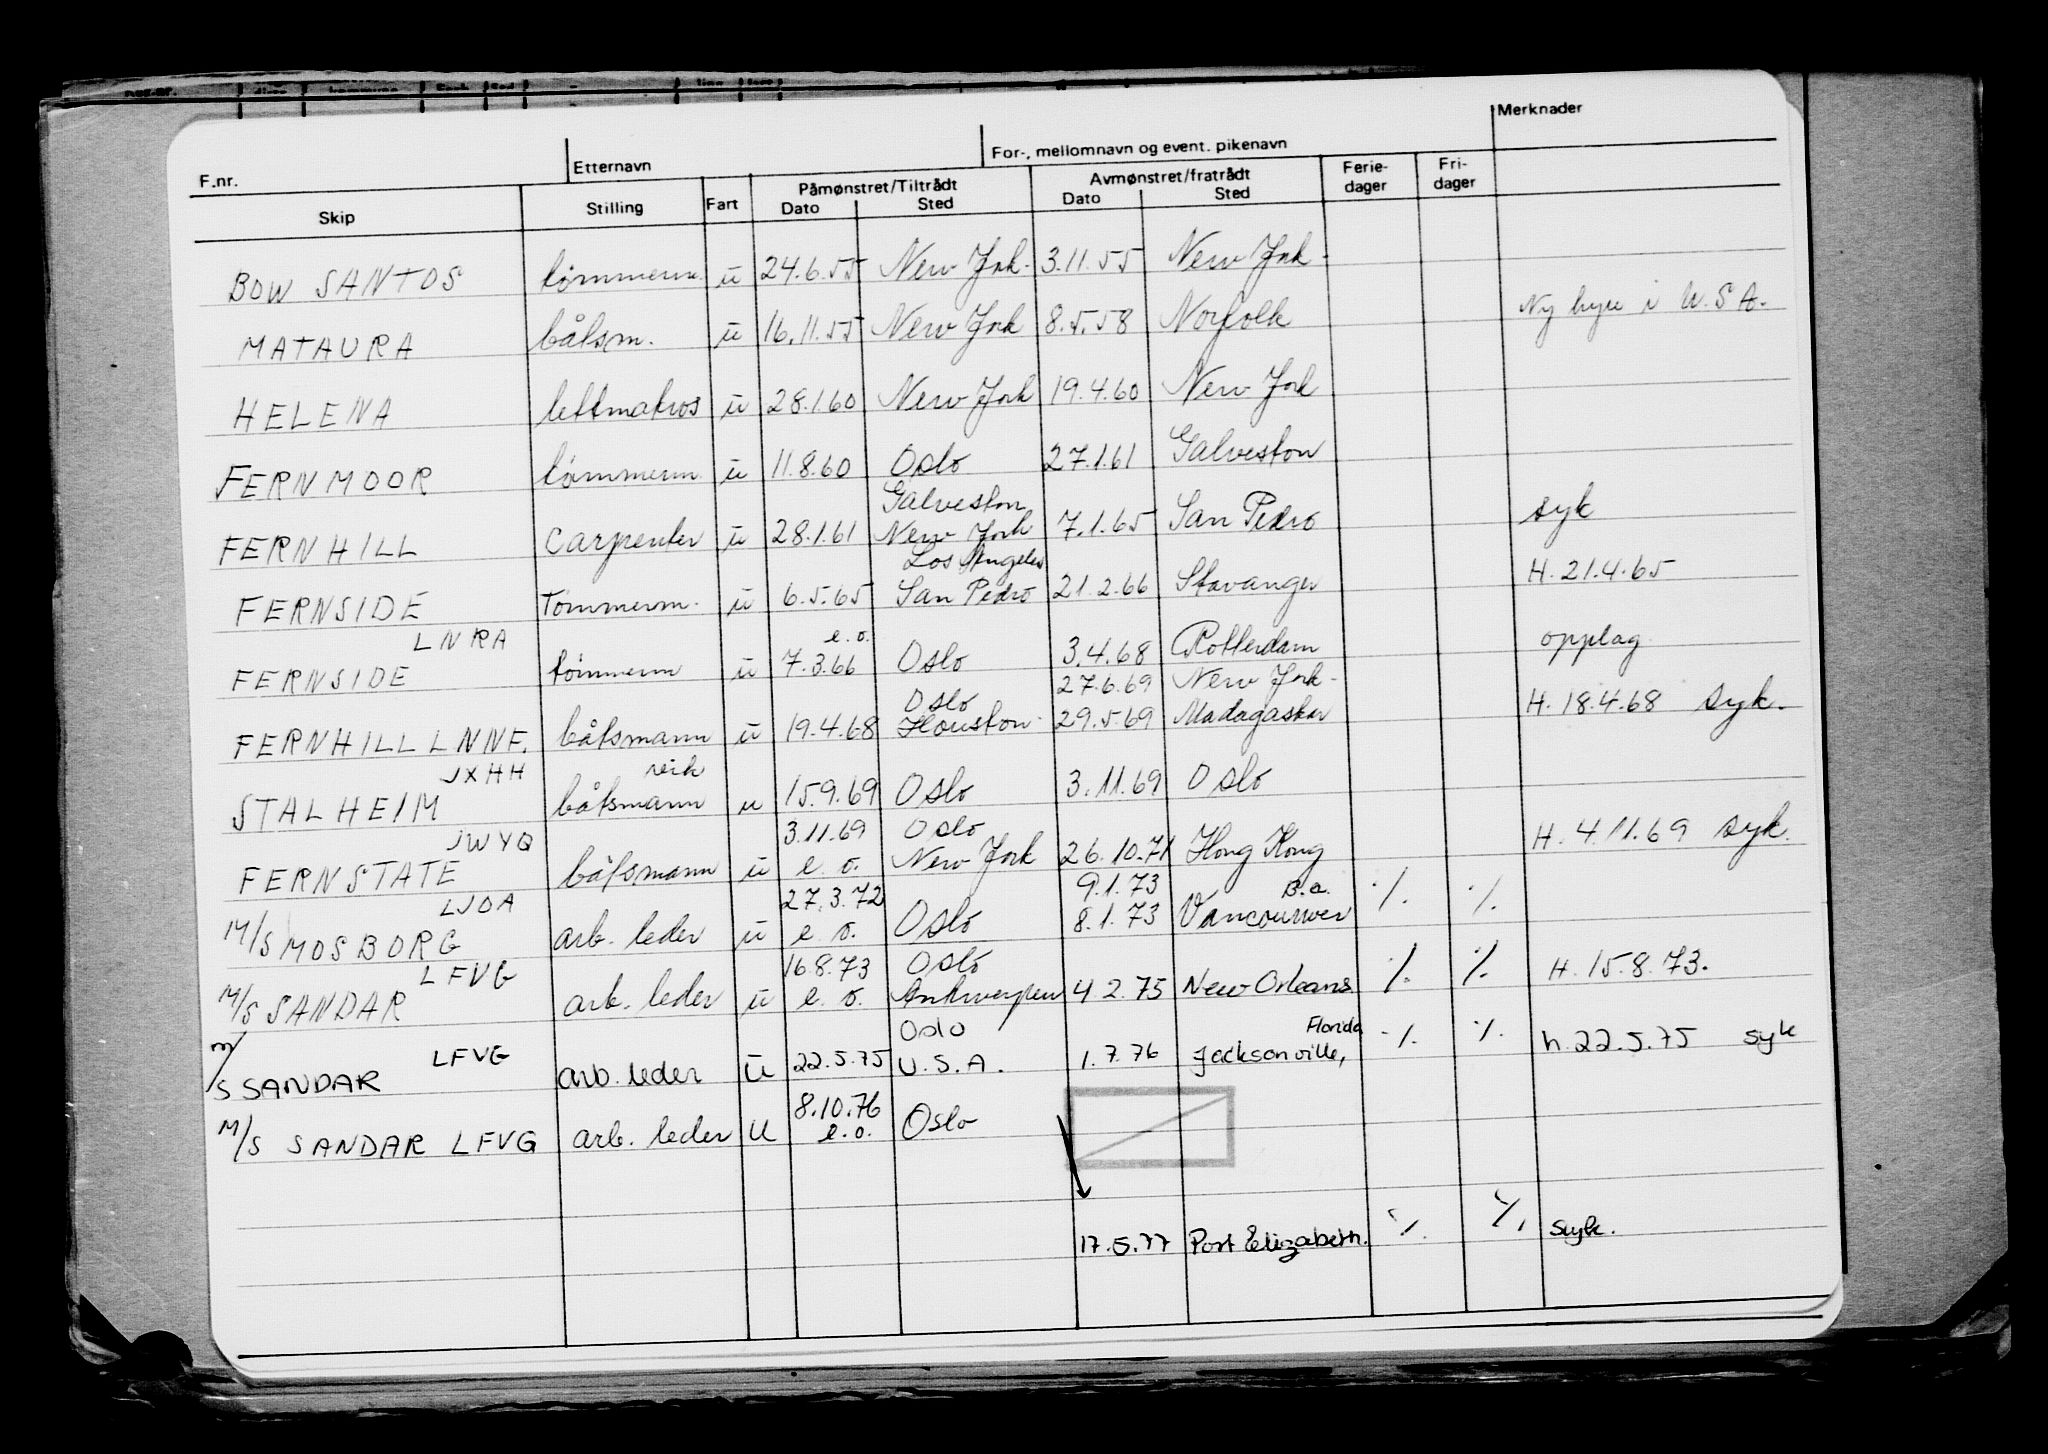 F.nr. Etternavn For-, mellomnavn og event. pikenavn Merknader
Skip Stilling Fart Påmønstret/Tiltrådt Dato Sted Avmønstret/fratrådt Dato Sted Ferie-dager Fri-dager
BOW SANTOS tømmerm. u 24.6.55 New York. 3.11.55 New York.
MATAURA båtsm. u 16.11.55 New York 8.5.58 Norfolk Ny hyre i U.S.A.
HELENA lettmatros u 28.1.60 New York 19.4.60 New York
FERNMOOR tømmerm u 11.8.60 Oslo 27.1.61 Galveston
Galveston
FERNHILL Carpenter u 28.1.61 New York 7.1.65 San Pedro syk
Los Angeles
FERNSIDE Tømmerm. u 6.5.65 San Pedro 21.2.66 Stavanger H. 21.4.65
LNRA e.o.
FERNSIDE tømmerm u 7.3.66 Oslo 3.4.68 Rotterdam opplag
Oslo 27.6.69 New York-
FERNHILL LNNF. båtsmann u 19.4.68 Houston- 29.5.69 Madagaskar H. 18.4.68 syk.
JXHH
STALHEIM båtsmann u 15.9.69 Oslo 3.11.69 Oslo
JWYQ 3.11.69 Oslo
FERNSTATE båtsmann u e.o. New York 26.10.71 Hong Kong H. 4.11.69 syk.
LJOA 27.3.72 9.1.73 B.c.
M/S MOSBORG arb. leder u e.o. Oslo 8.1.73 Vancouver ·/. ·/.
LFVG 16.8.73 Oslo
M/S SANDAR arb. leder u e.o. Antwerpen 4.2.75 New Orleans ·/. ·/. H. 15.8.73.
Oslo Florida
m/s SANDAR LFVG arb. leder u 22.5.75 U.S.A. 1.7.76 Jacksonville, ·/. ·/. h. 22.5.75 syk
8.10.76
M/S SANDAR LFVG arb. leder u e.o. Oslo
17.5.77 Port Elizabeth. ·/. ·/. syk.